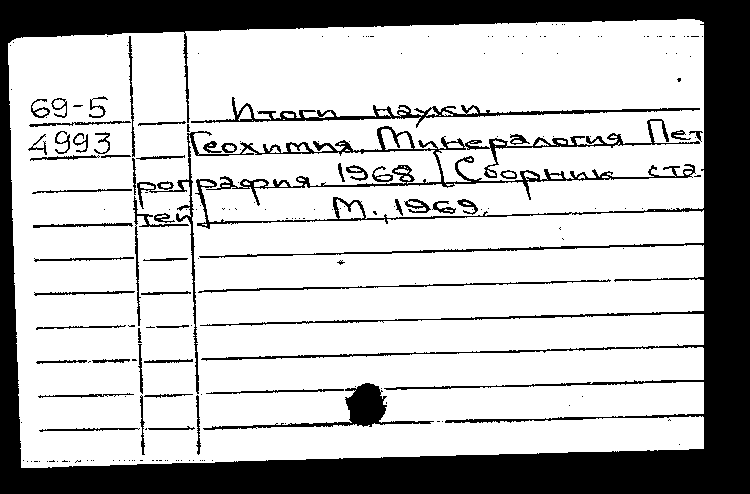 69-5 Итоги науки.
4993 Геохимия. Минералогия Пет
рография. 1968. [Сборник ста-
тей]. М., 1969.